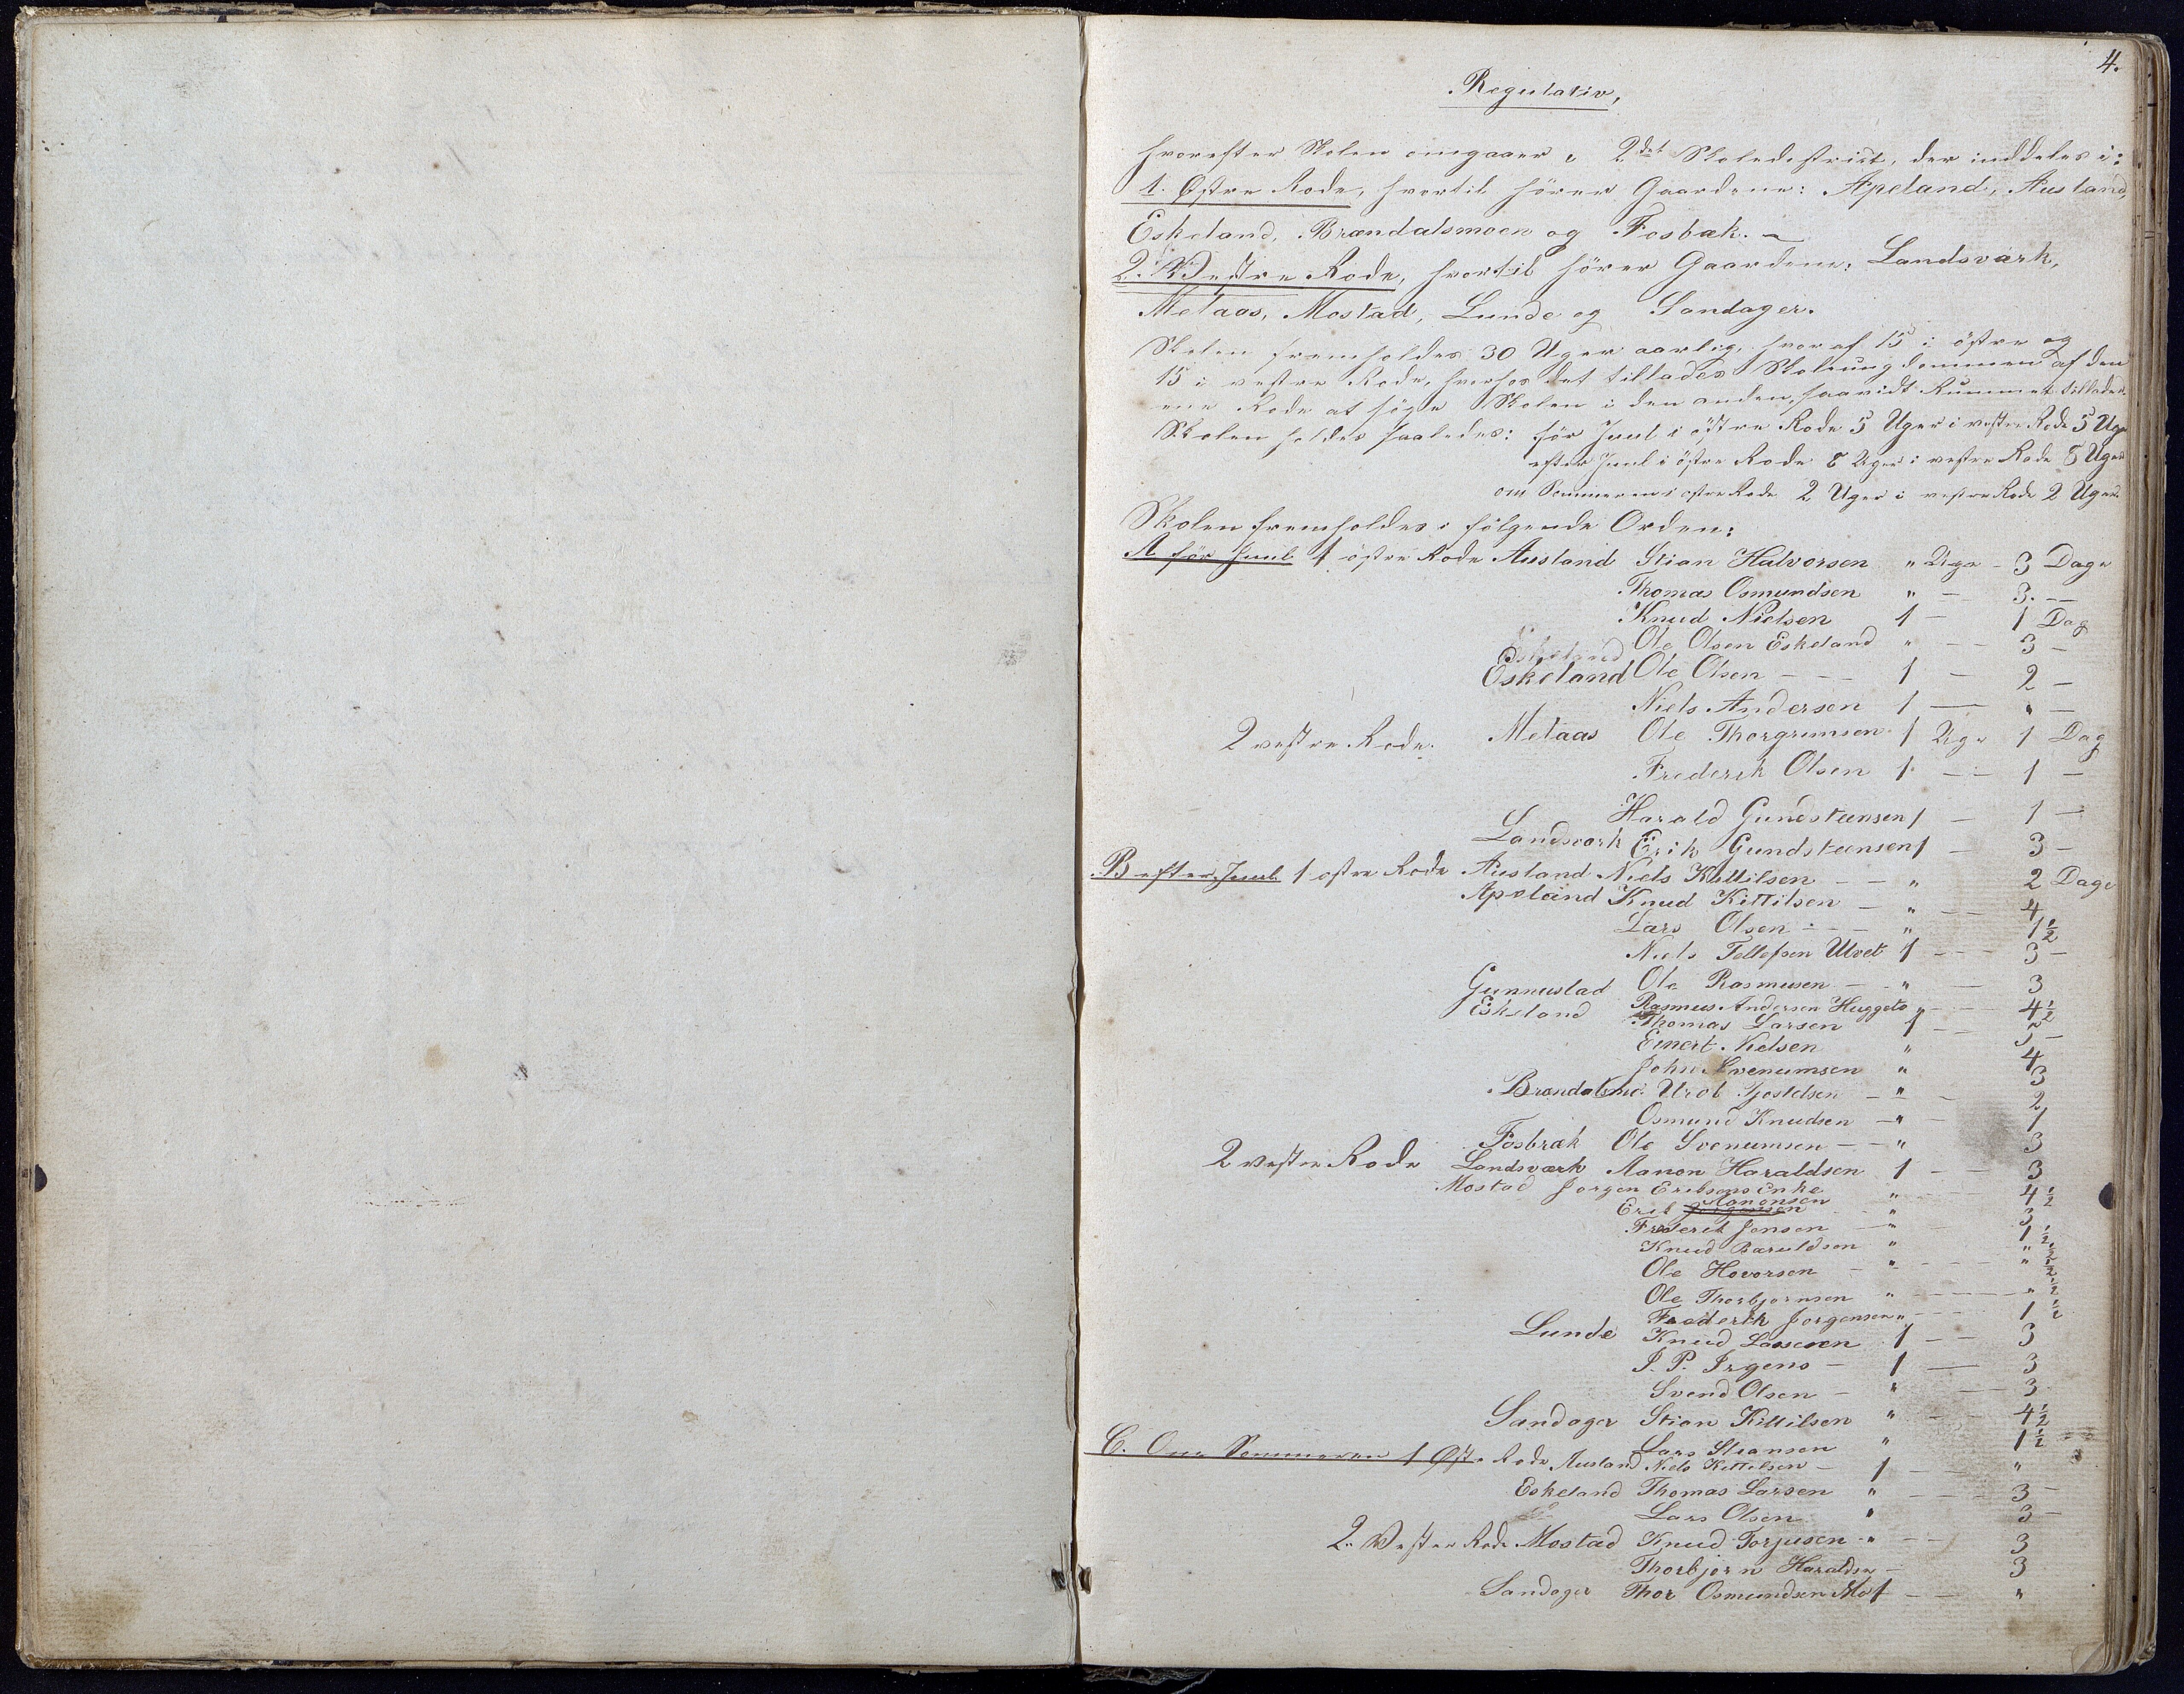 4.
Regulativ,
hvorefter Skolen omgaaer i 2det Skoledistrict, der inddeles i:
1. Østre Rode, hvortil hörer Gaardene: Apeland, Ausland,
Eskeland, Brændalsmoen og Fosbæk. –
2. Vestre Rode, hvortil hörer Gaardene: Landsværk,
Melaas, Mostad, Lunde og Sandager.
Skolen fremholdes 30 Uger aarlig, hvoraf 15 i östre og
15 i vestre Rode, hvorhos det tillades Skoleungdommen af den
ene Rode at söge Skolen i den anden, saavidt Rummet tillader.
Skolen holdes saaledes: för Juul i östre Rode 5 Uger i vestre Rode 5 Uger
efter Juul i östre Rode 8 Uger i vestre Rode 8 Uger
om Sommeren i östre Rode 2 Uger i vestre Rode 2 Uger.
Skolen fremholdes i fölgende Orden:
A för Juul 1 östre Rode Ausland Stian Halvorsen " Uge – 3 Dage
Thomas Osmundsen " — 3. —
Knud Nielsen 1 – 1 Dag
Eskeland Ole Olsen Eskeland " — 3 –
Eskeland Ole Olsen – – – 1 – 2 –
Niels Andersen 1 — " —
2 vestre Rode. Melaas Ole Thorgrimsen 1 Uge 1 Dag
Frederik Olsen 1 — 1 –
Harald Gundsteensen 1 – 1 –
Landsværk Erik Gundsteensen 1 – 3 –
B efter Juul 1 østre Rode Ausland Niels Kittilsen – – " 2 Dage
Apeland Knud Kittilsen – " — 4
Lars Olsen – – – " 1 1/2
Niels Tellefsen Ulvet 1 — 3 –
Gunnustad Ole Rasmusen – – " — 3
Eskeland Rasmus Andersen Huggeto " — 4 1/2
Thomas Larsen 1 — 5 –
Einert Nielsen " 4
John Svenumsen " 3
Brændalsmo. Urol Gjostelsen – " – 2
Osmund Knudsen – " – 1
Fosbræk Ole Svenumsen – – " 3
2 vestre Rode Landsværk Aanon Haraldsen 1 — 3
Mostad Jørgen Eriksens Enke " 4 1/2
Erik Jørgensen Aanonsen " 3
Frederik Jensen – " – 1 1/2
Knud Baruldsen " " 1/2
Ole Hovorsen – " — " 1/2
Ole Thorbjørnsen " — " 1/2
Frederik Jorgensen " — 1 1/2
Lunde Knud Lassesen 1 — 3
J. P. Irgens – 1 — 3
Svend Olsen – " — 3
Sandager Stian Kittilsen " — 4 1/2
Lars Stiansen " 1 1/2
C. Om Sommeren 1 Øst. Rode Ausland Niels Kittelsen – 1 — "
Eskeland Thomas Larsen " — 3 –
Lars Olsen " 3 –
2. Vestre Rode Mostad Knud Torjusen " — 3
Thorbjørn Haraldsen – 3
Sandager Thor Osmundsen Mo 1 — "